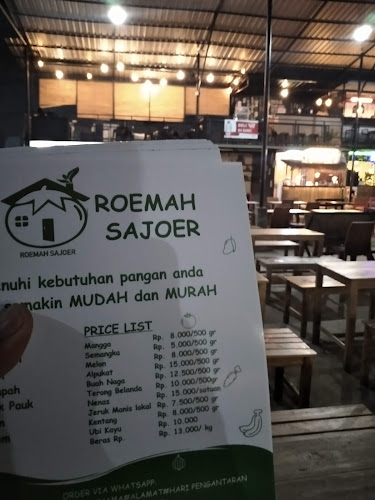 ROEMAH
SAJOER
ROEMAH SAJOER
nuhi kebutuhan pangan anda
makin MUDAH dan MURAH
PRICE LIST
Mangga Rp. 8.000/500 gr
Semangka Rp. 5.000/500 gr
Melon Rp. 8.000/500 gr
Alpukat Rp. 15.000/500 gr
Buah Naga Rp. 12.500/500 gr
Terong Belanda Rp. 10.000/500 gr
Nenas Rp. 15.000/satuan
Jeruk Manis lokal Rp. 7.500/500 gr
Kentang Rp. 8.000/500 gr
Ubi Kayu Rp. 10.000
Beras Rp. Rp. 13.000/ kg
pah
Pauk
ORDER VIA WHATSAPP
ALAMAT#HARI PENGANTARAN